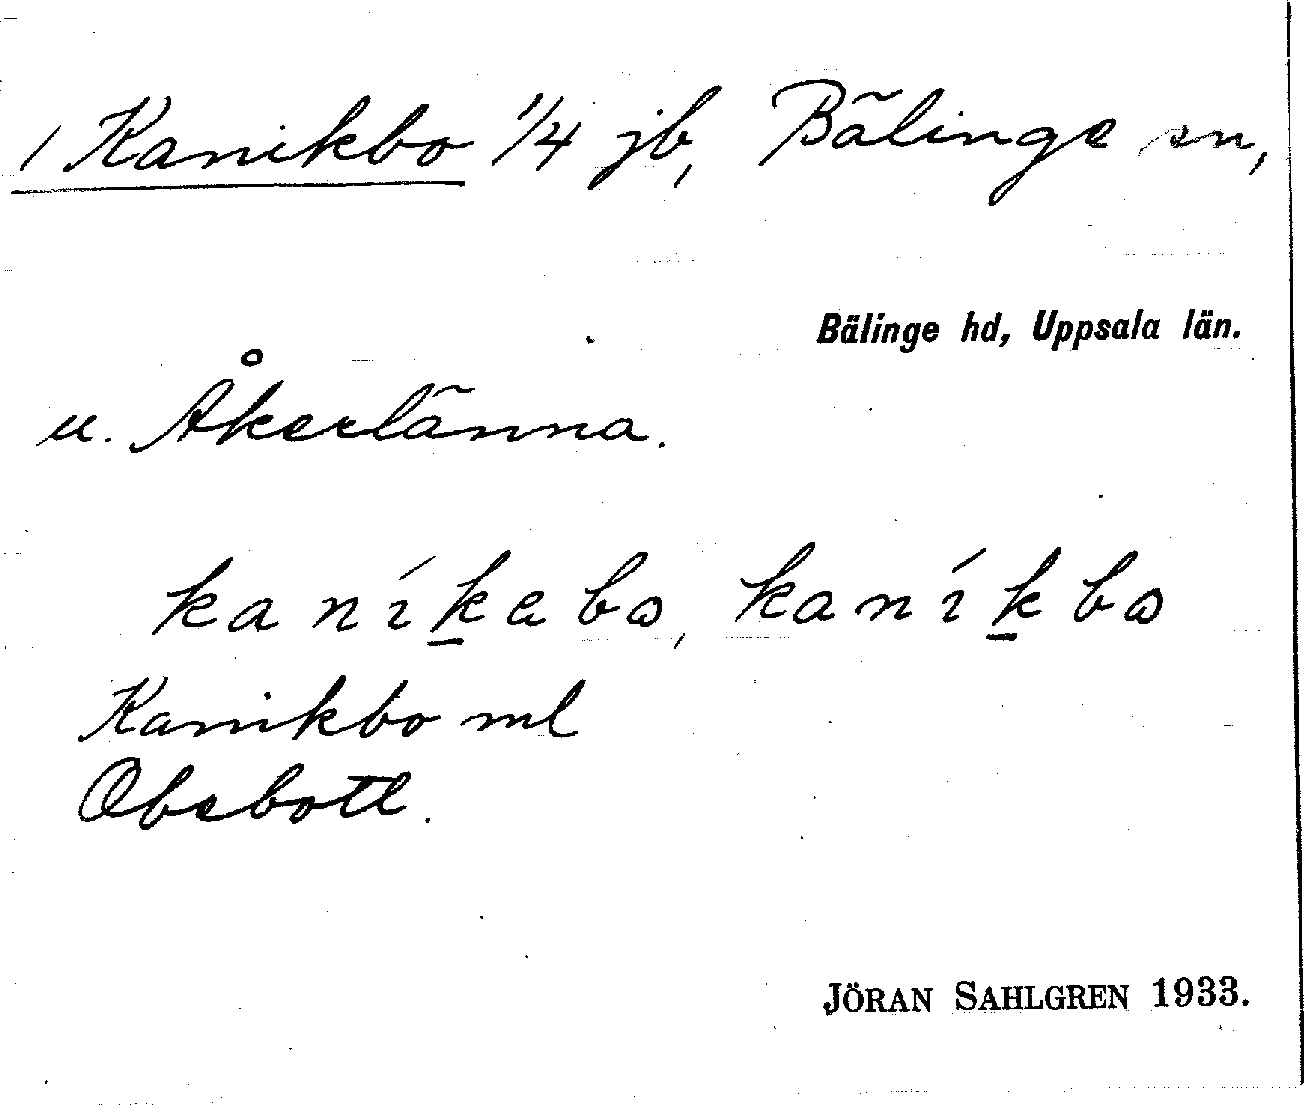 1 Kanikbo 1/4 jb, Bälinge sn,
Bälinge hd, Uppsala län.
u. Åkerlänna.
kaníkebω, kaníkbω
Kanikbo ml
Obebotl.
JÖRAN SAHLGREN 1933.